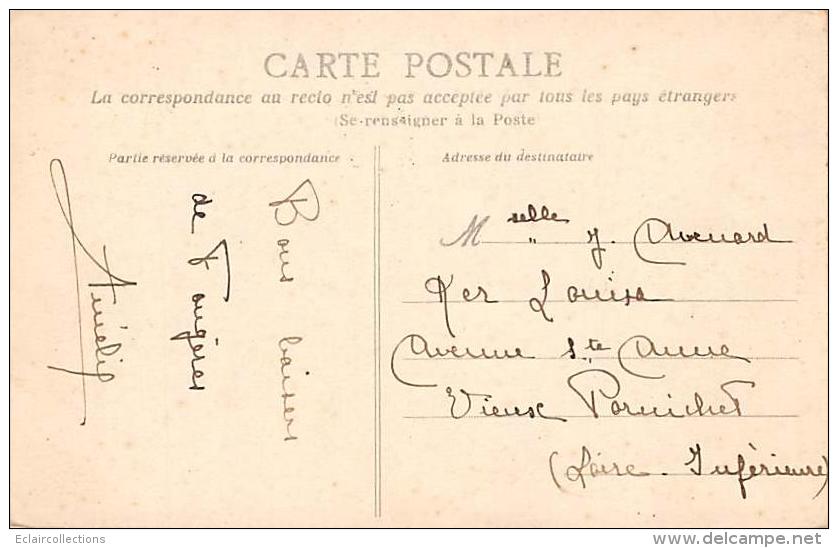 CARTE POSTALE
La correspondance au recto n'est pas acceptée par tous les pays étrangers
(Se renseigner à la Poste
Partie réservée à la correspondance
Adresse du destinataire
Bons baisers
de Fougères
Amélie
Mselle J. Avenard
Ker Louisa
Avenue Ste Anne
Vieux Pornichet
(Loire-Inférieure)
Eclaircollections
www.delcampe.net